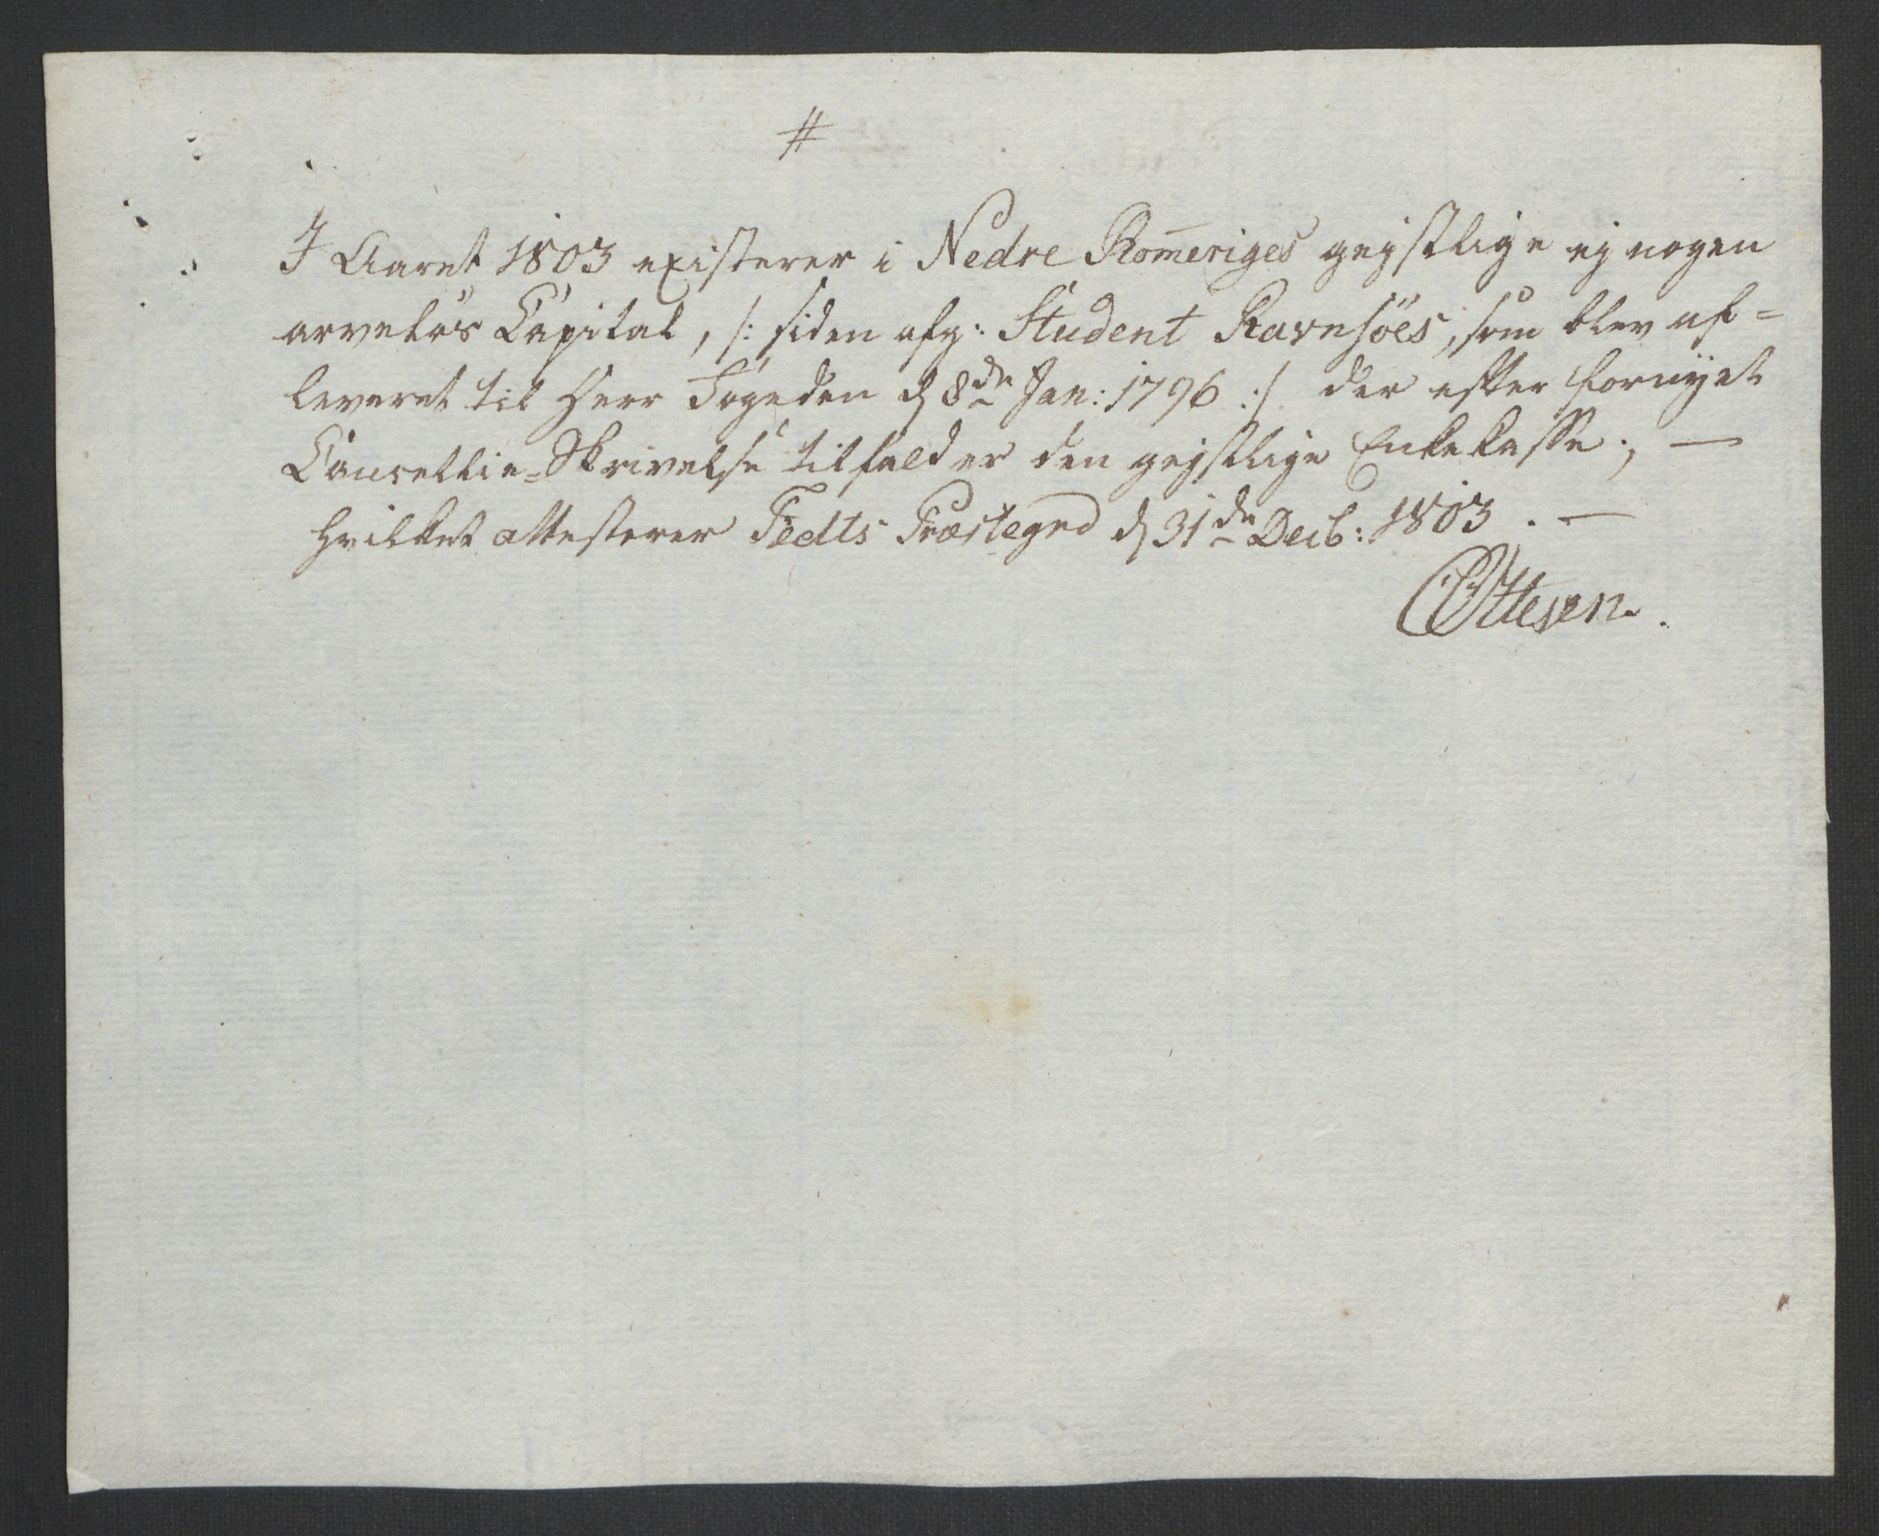 #
I Aaret 1803 existerer i Nedre Rom̄eriges gejstlige ej nogen
arveløs Capital, /: siden afg: Student Ravnsöes, som blev af-
leveret til Herr Fogeden d 8de Jan: 1796 :/ der efter fornyet
Cancellie-Skrivelse tilfalder den gejstlige Enkekasse; —
hvilket attesterer Fedts Præstegrd d 31de Decb: 1803. —
COttesen.